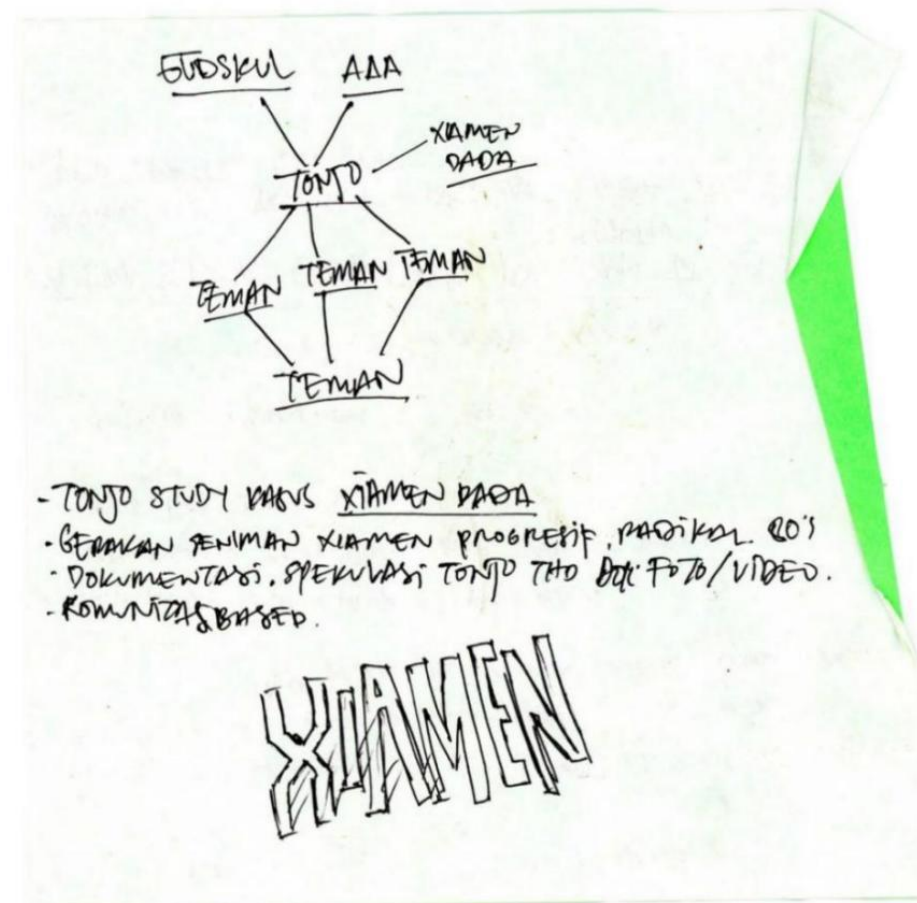 GUDSKUL AAA
XIAMEN
DADA
TONJO
TEMAN TEMAN TEMAN
TEMAN
- TONJO STUDY KASUS XIAMEN DADA
- GERAKAN SENIMAN XIAMEN PROGRESIF, RADIKAL 80's
- DOKUMENTASI, SPEKULASI TONJO THD DOK FOTO/VIDEO.
- KOMUNITAS BASED.
XIAMEN